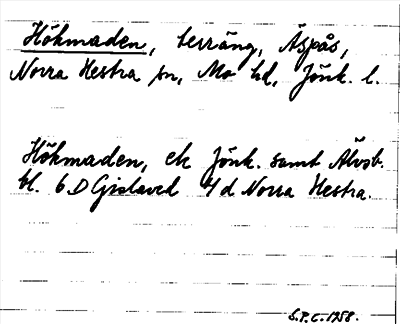 Hökmaden, terräng, Äspås,
Norra Hestra sn, Mo hd, Jönk. l.
Hökmaden, ek Jönk. samt Älvsb.
bl. 6 D Gislaved 4 d Norra Hestra.
S.P.C. 1958.